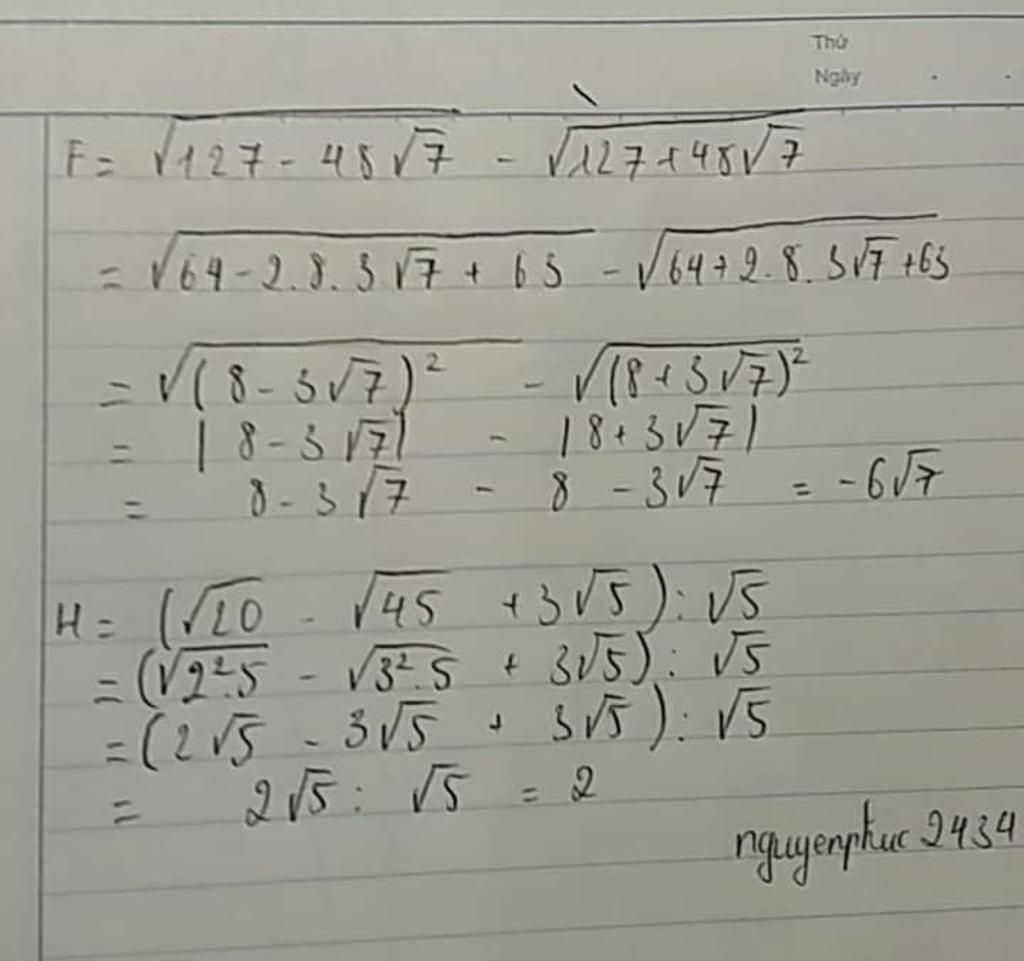 Thứ
Ngày
F = √127 - 48√7 - √127 + 48√7
= √64 - 2.8.3√7 + 63 - √64 + 2.8.3√7 + 63
= √(8 - 3√7)² - √(8 + 3√7)²
= |8 - 3√7| - |8 + 3√7|
= 8 - 3√7 - 8 - 3√7 = -6√7
H = (√20 - √45 + 3√5) : √5
= (√2².5 - √3².5 + 3√5) : √5
= (2√5 - 3√5 + 3√5) : √5
= 2√5 : √5 = 2
nguyenphuc2434